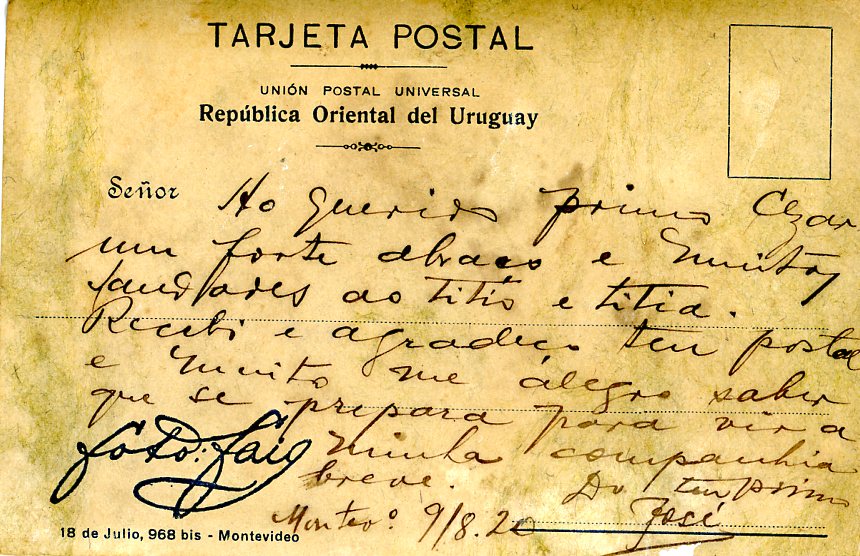 TARJETA POSTAL
UNIÓN POSTAL UNIVERSAL
República Oriental del Uruguay
Señor Ao querido primo Cezar
um forte abraço e muitas
saudades ao titio e titia.
Recebi e agradeço teu postal
e muito me alegro saber
que se prepara para vir a
minha companhia
breve.
Do teu primo
José
Montevº 9/8.20
foto: faig
18 de Julio, 968 bis - Montevideo